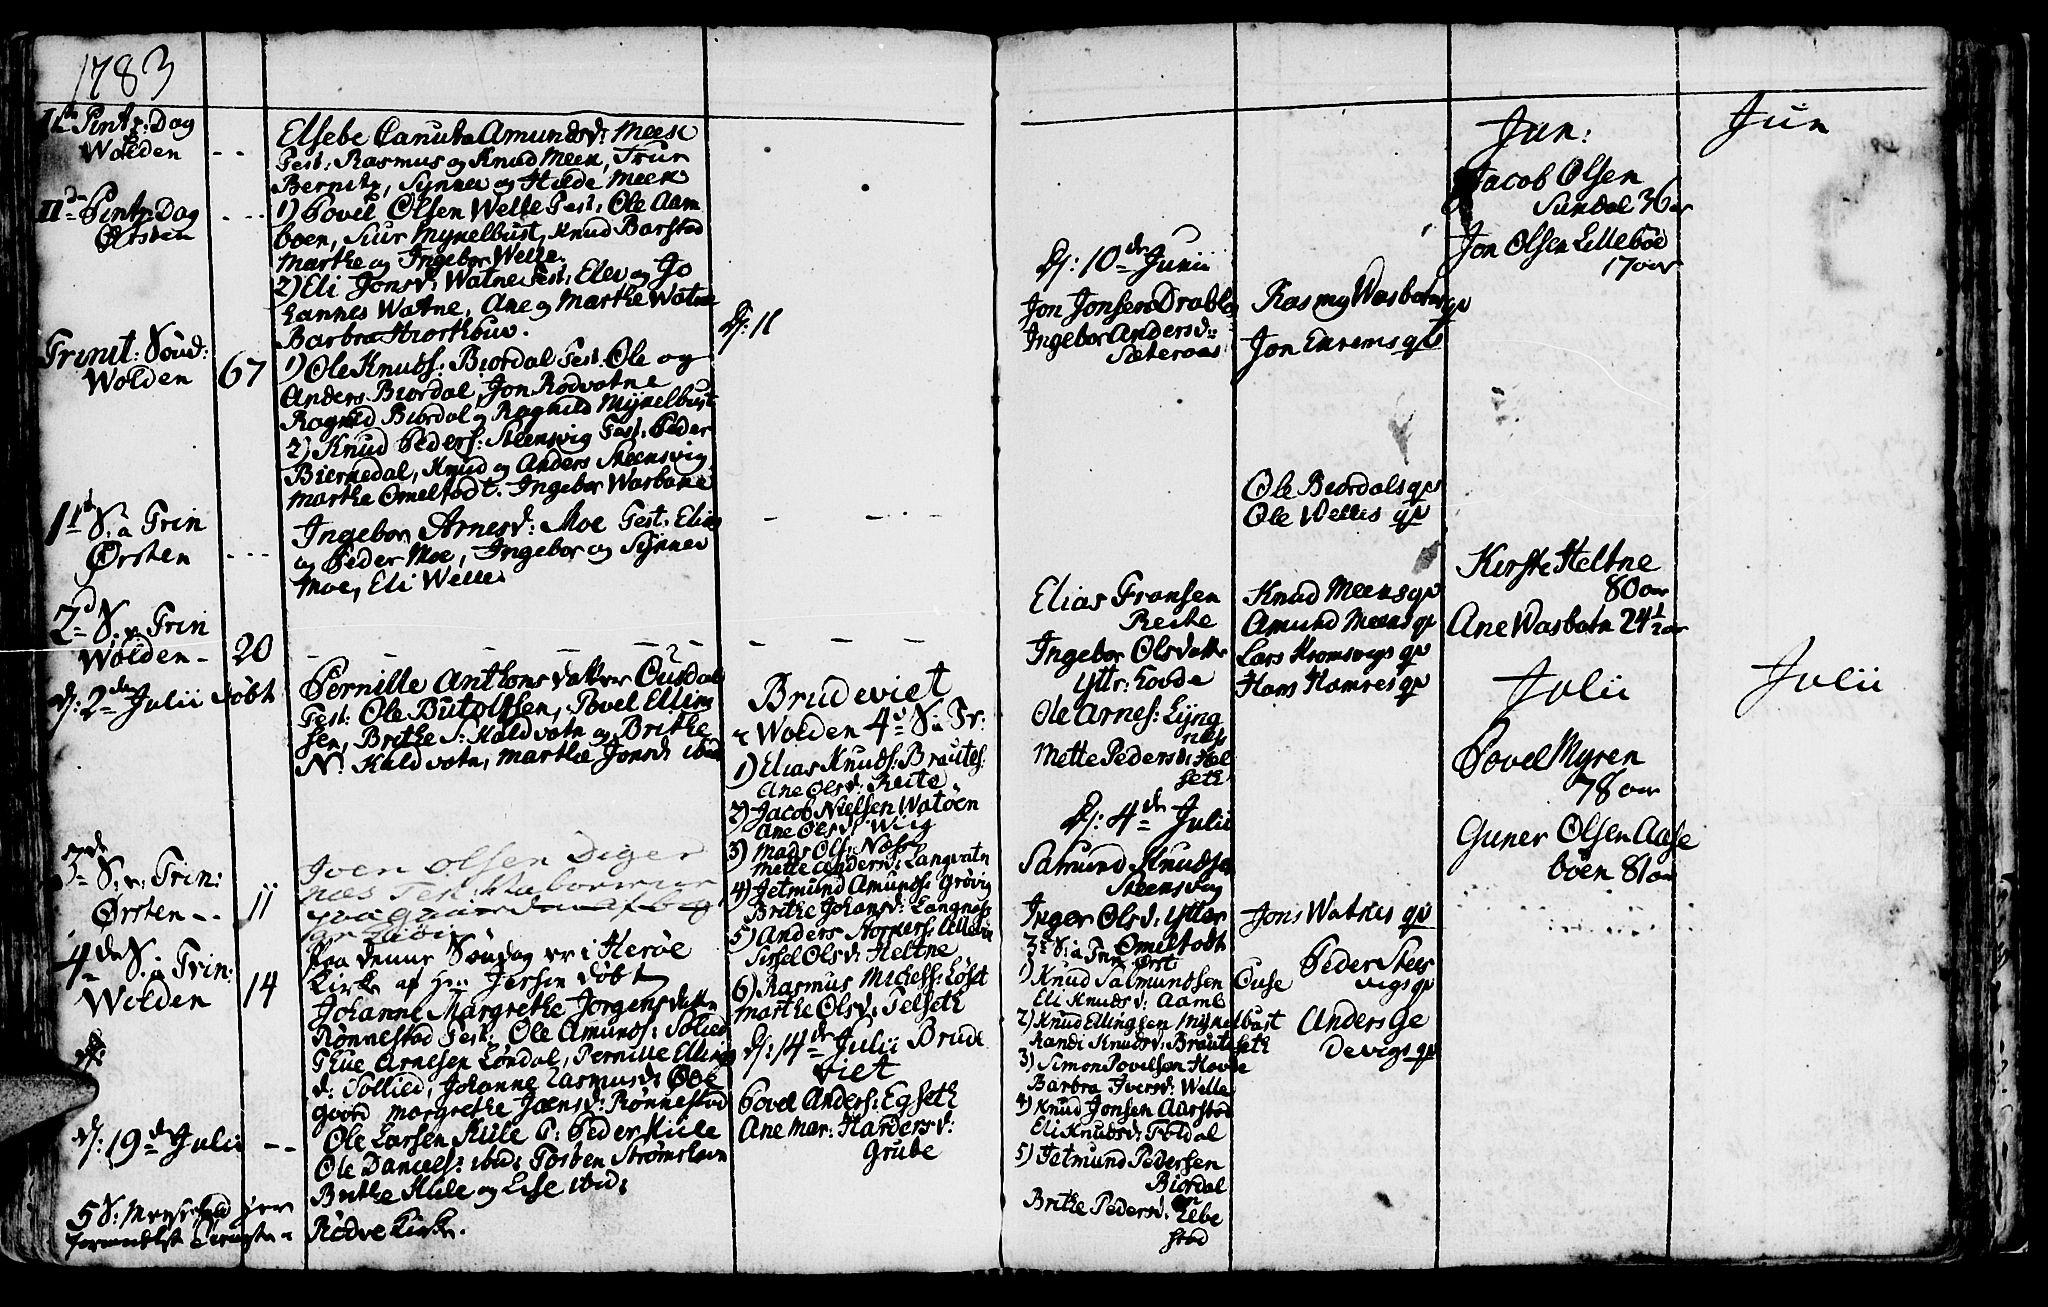 1783
Pintz: Dag
Wolden - -
Elsebe Canuta Amundsd: Meek
Test: Rasmus og Knud Meek, Frur
Bernitz, Synnev og Hilde Meek
IIde Pintz: Dag - - -
Ørsten
1) Povel Olsen Welle Test: Ole Aam
boen, Siur Myxelbust, Knud Barstad
Marthe og Ingebor Welle.
2) Eli Jonsd: Watne Test: Elev og Jo
hannes Watne, Ane og Marthe Watne
Barbra Hiorthouv.
Trinit: Sønd:
Wolden 67
1) Ole Knuds: Biordal Test: Ole og
Anders Biordal, Jon Rødvatne
Ragnild Biordal og Ragnild Myxelbust
2) Knud Peders: Steensvig Test: Peder
Biernedal, Knud og Anders Steensvig
Marthe Omelstodt. Ingebor Wasbotne
1te S: a Trin
Ørsten - - -
Ingebor Arnesd: Moe Test: Elias
og Peder Moe, Ingebor og Synnev
Moe, Eli Welle
2d S: a Trin
Wolden - 20
dj: 2den Julii døbt
Pernille Anthonisdatter Ousdal
Test: Ole Butolfsen, Povel Elling
sen, Brithe S: Kaldvatn og Brithe
N: Kaldvatn, Marthe Jonsd: ibid
3de S: a: Trin:
Ørsten - - 11
Iven Olsen Diger
næs
4de S: a Trin:
Wolden 14
Paa denne Søndag er i Herøe
Kirke af Hr: Jersin døbt
Johanne Margrethe Jørgensdatter
Rønnestad Test: Ole Amunds: Sollied
Thue Arnesen Løndal, Pernille Ellings
d: Sollied, Johanne Rasmusd: Øde
gaard Margrethe Joensd: Rønnestad
dj: 19de Julii - -
Ole Larsen Kile T: Peder Kile
Ole Daniels: ibid: Tosten Strømshavn
Brithe Kile og Lise ibid:
5 S:
Rødve Kirke.
dj: 11
Brudeviet
i Wolden 4de S: a Tr:
1) Elias Knuds: Brautes:
Ane Olsd: Reite
2) Jacob Nielsen Watøen
Ane Olsd: Wiig
3) Mads Ols: Næss
Mette Andersd: Langvatn
4) Jetmund Amunds: Grøvig
Brithe Johansd: Langnæss
5) Anders
Sissel Olsd: Heltne
6) Rasmus Michels: Løset
Marthe Olsd: Felseth
dj: 14de Julii Brude
viet
Povel Anders: Egseth
Ane Mar: Hardersd:
Grube
dj: 10de Junii
Jon Jonsen Drabløs
Ingebor Andersd:
Sæteraas
Elias Fransen
Reite
Ingebor Olsdatter
Yttr: Hovde
Ole Arnes: Lyng
næs
Mette Pedersd: Hel
seth
dj: 4de Julii
Salmund Knudsen
Steensvig
Inger Olsd: Ytter
Omelstodt
3de S: a Trin Ørst
1) Knud Salmundsen Ouse
Eli Knudsd: Aamb
2) Knud Ellingsen Myxelbust
Randi Knudsd: Brauteseth
3) Simon Povelsen Hovde
Barbra Iversd: Welle
4) Knud Jonsen Aarstad
Eli Knudsd: Foldal
5) Jetmund Pedersen
Biordal
Brithe Pedersd: Ebbe
stad
Rasmus Wasbotns qv
Jon Eurems qv
Ole Biordals qv
Ole Welles qv
Knud Meeks qv
Amund Meeks qv
Lars Kromsvigs qv
Hans Hamres qv
Jons Watnes qv
Peder Stees
vigs qv
Anders Ge
devigs qv
Jun:
Jacob Olsen
Sundal 36 aar
Jon Olsen Lillebøe
17 aar
Kirste Heltne
80 aar
Ane Wasbotn 24 1/2 aar
Julii
Povel Myren
78 aar
Guner Olsen Aase
bøen 81 aar
Jun
Julii